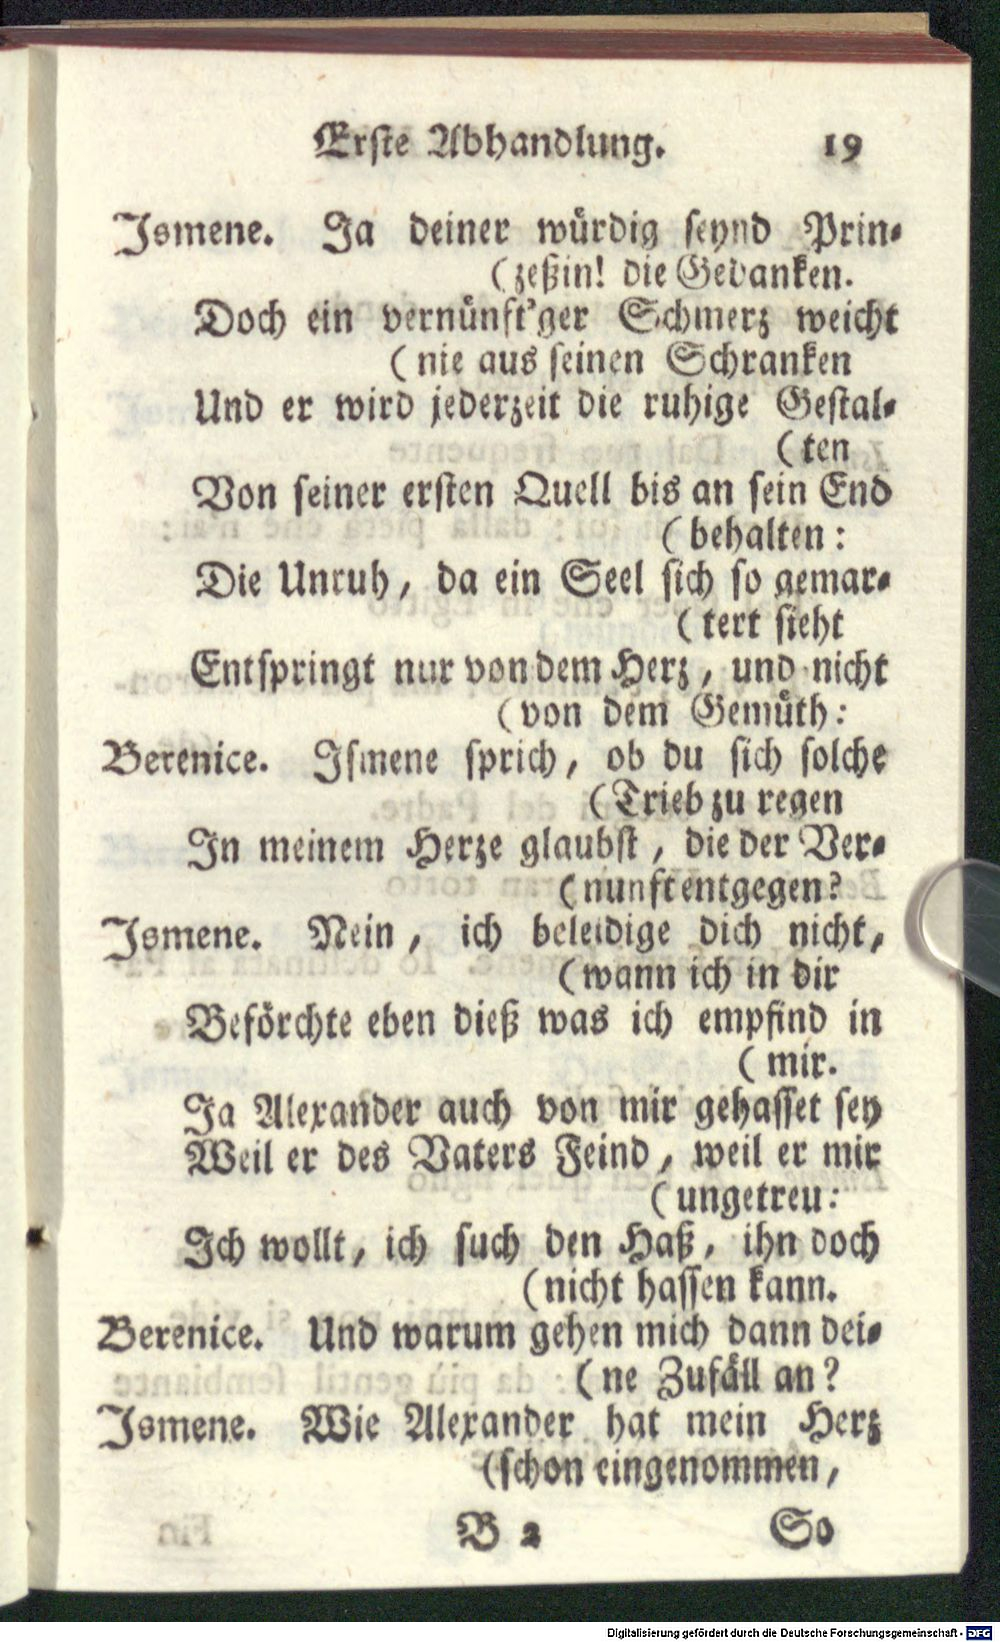 Erste Abhandlung. 19
Ismene. Ja deiner würdig seynd Prin-
(zeßin! die Gedanken.
Doch ein vernünft'ger Schmerz weicht
(nie aus seinen Schranken
Und er wird jederzeit die ruhige Gestal-
(ten
Von seiner ersten Quell bis an sein End
(behalten:
Die Unruh, da ein Seel sich so gemar-
(tert sieht
Entspringt nur von dem Herz, und nicht
(von dem Gemüth:
Berenice. Ismene sprich, ob du sich solche
(Trieb zu regen
In meinem Herze glaubst, die der Ver-
(nunft entgegen?
Ismene. Nein, ich beleidige dich nicht,
(wann ich in dir
Beförchte eben dieß was ich empfind in
(mir.
Ja Alexander auch von mir gehasset sey
Weil er des Vaters Feind, weil er mir
(ungetreu:
Ich wollt, ich such den Haß, ihn doch
(nicht hassen kann.
Berenice. Und warum gehen mich dann dei-
(ne Zufäll an?
Ismene. Wie Alexander hat mein Hertz
(schon eingenommen,
B 2 So
Digitalisierung gefördert durch die Deutsche Forschungsgemeinschaft - DFG